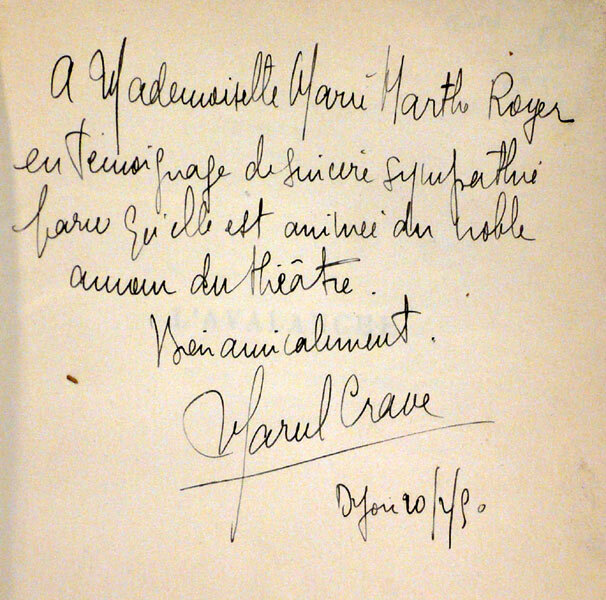 A Mademoiselle Marie Marthe Royer
en témoignage de sincère sympathie
parce qu'elle est animée du noble
amour du théâtre.
Bien amicalement.
Marcel Crave
Dijon 20/2/50
L'AVALANCHE